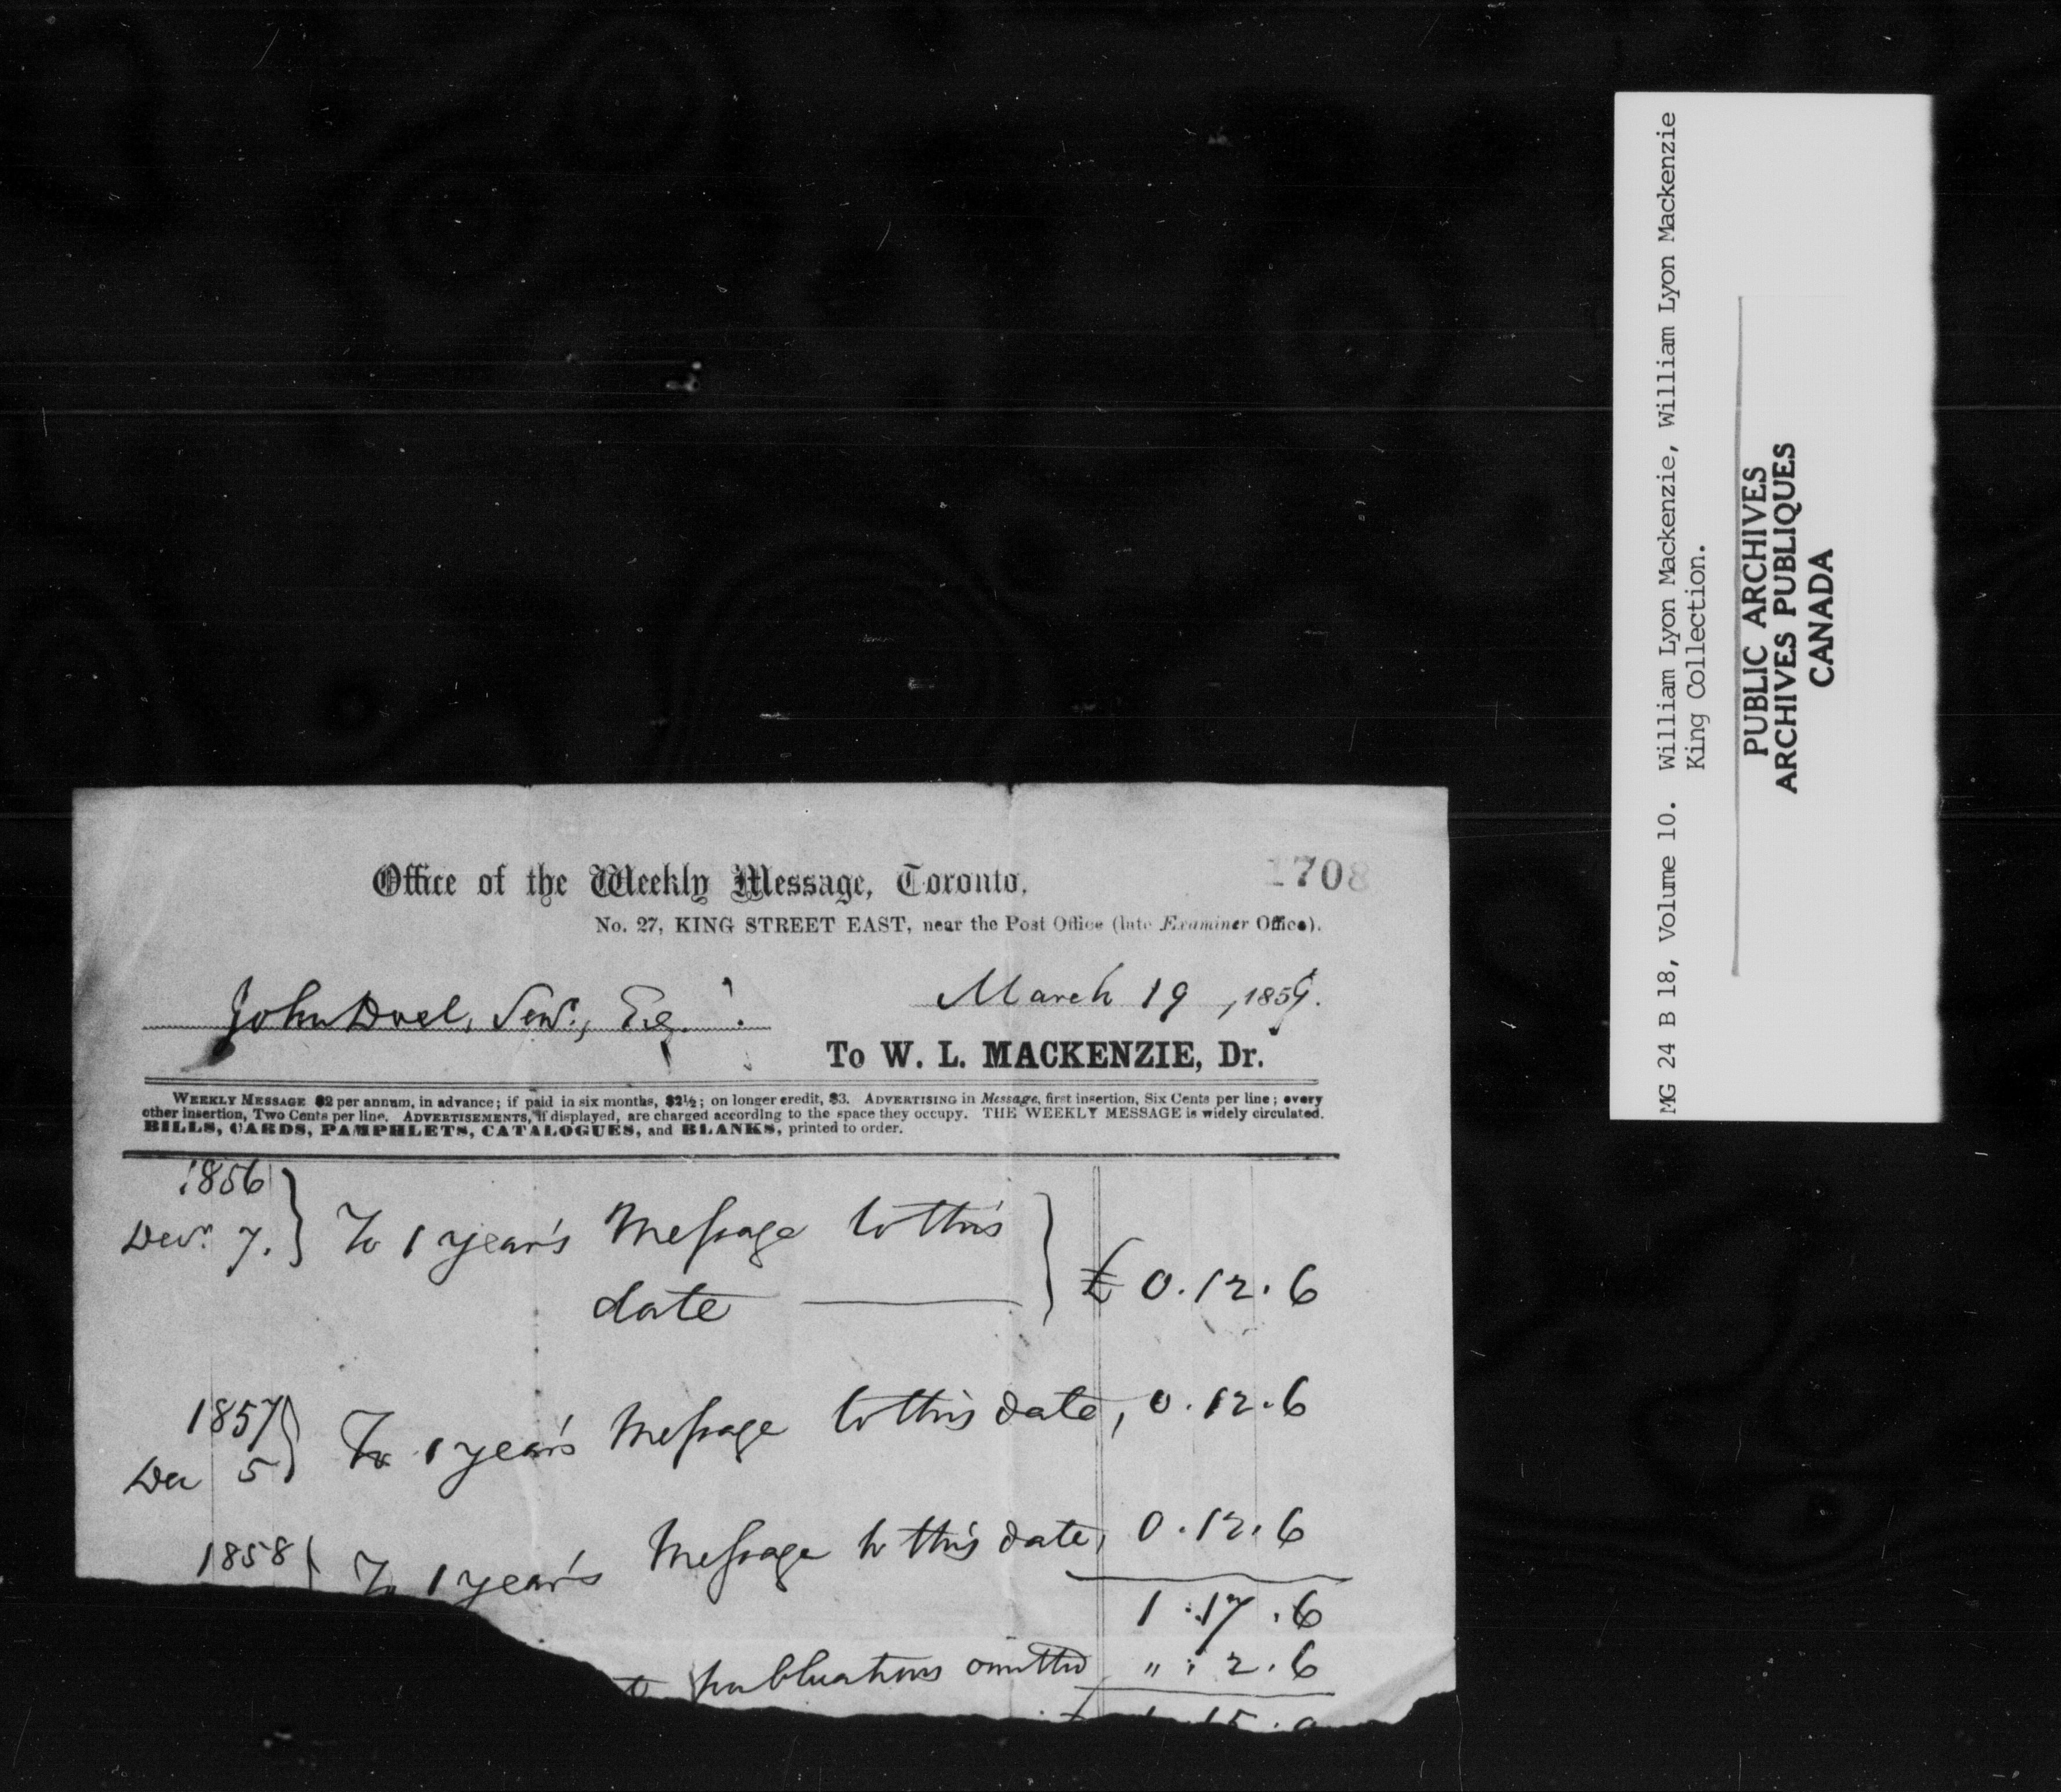 Office of the Weekly Message, Toronto.
1708
No. 27, KING STREET EAST, near the Post Office (late Examiner Office).
John Doel, Senr., Esq.
March 19, 1859.
To W. L. MACKENZIE, Dr.
WEEKLY MESSAGE $2 per annum, in advance; if paid in six months, $2½; on longer credit, $3. ADVERTISING in Message, first insertion, Six Cents per line; every
other insertion, Two Cents per line. ADVERTISEMENTS, if displayed, are charged according to the space they occupy. THE WEEKLY MESSAGE is widely circulated.
BILLS, CARDS, PAMPHLETS, CATALOGUES, and BLANKS, printed to order.
1856
Decr. 7. } To 1 year's Message to this
date } £ 0. 12. 6
1857
Dec 5 } To 1 year's Message to this date, 0. 12. 6
1858 To 1 year's Message to this date, 0. 12. 6
1. 17. 6
publications omitted " : 2. 6
15. 0
MG 24 B 18, Volume 10. William Lyon Mackenzie, William Lyon Mackenzie
King Collection.
PUBLIC ARCHIVES
ARCHIVES PUBLIQUES
CANADA